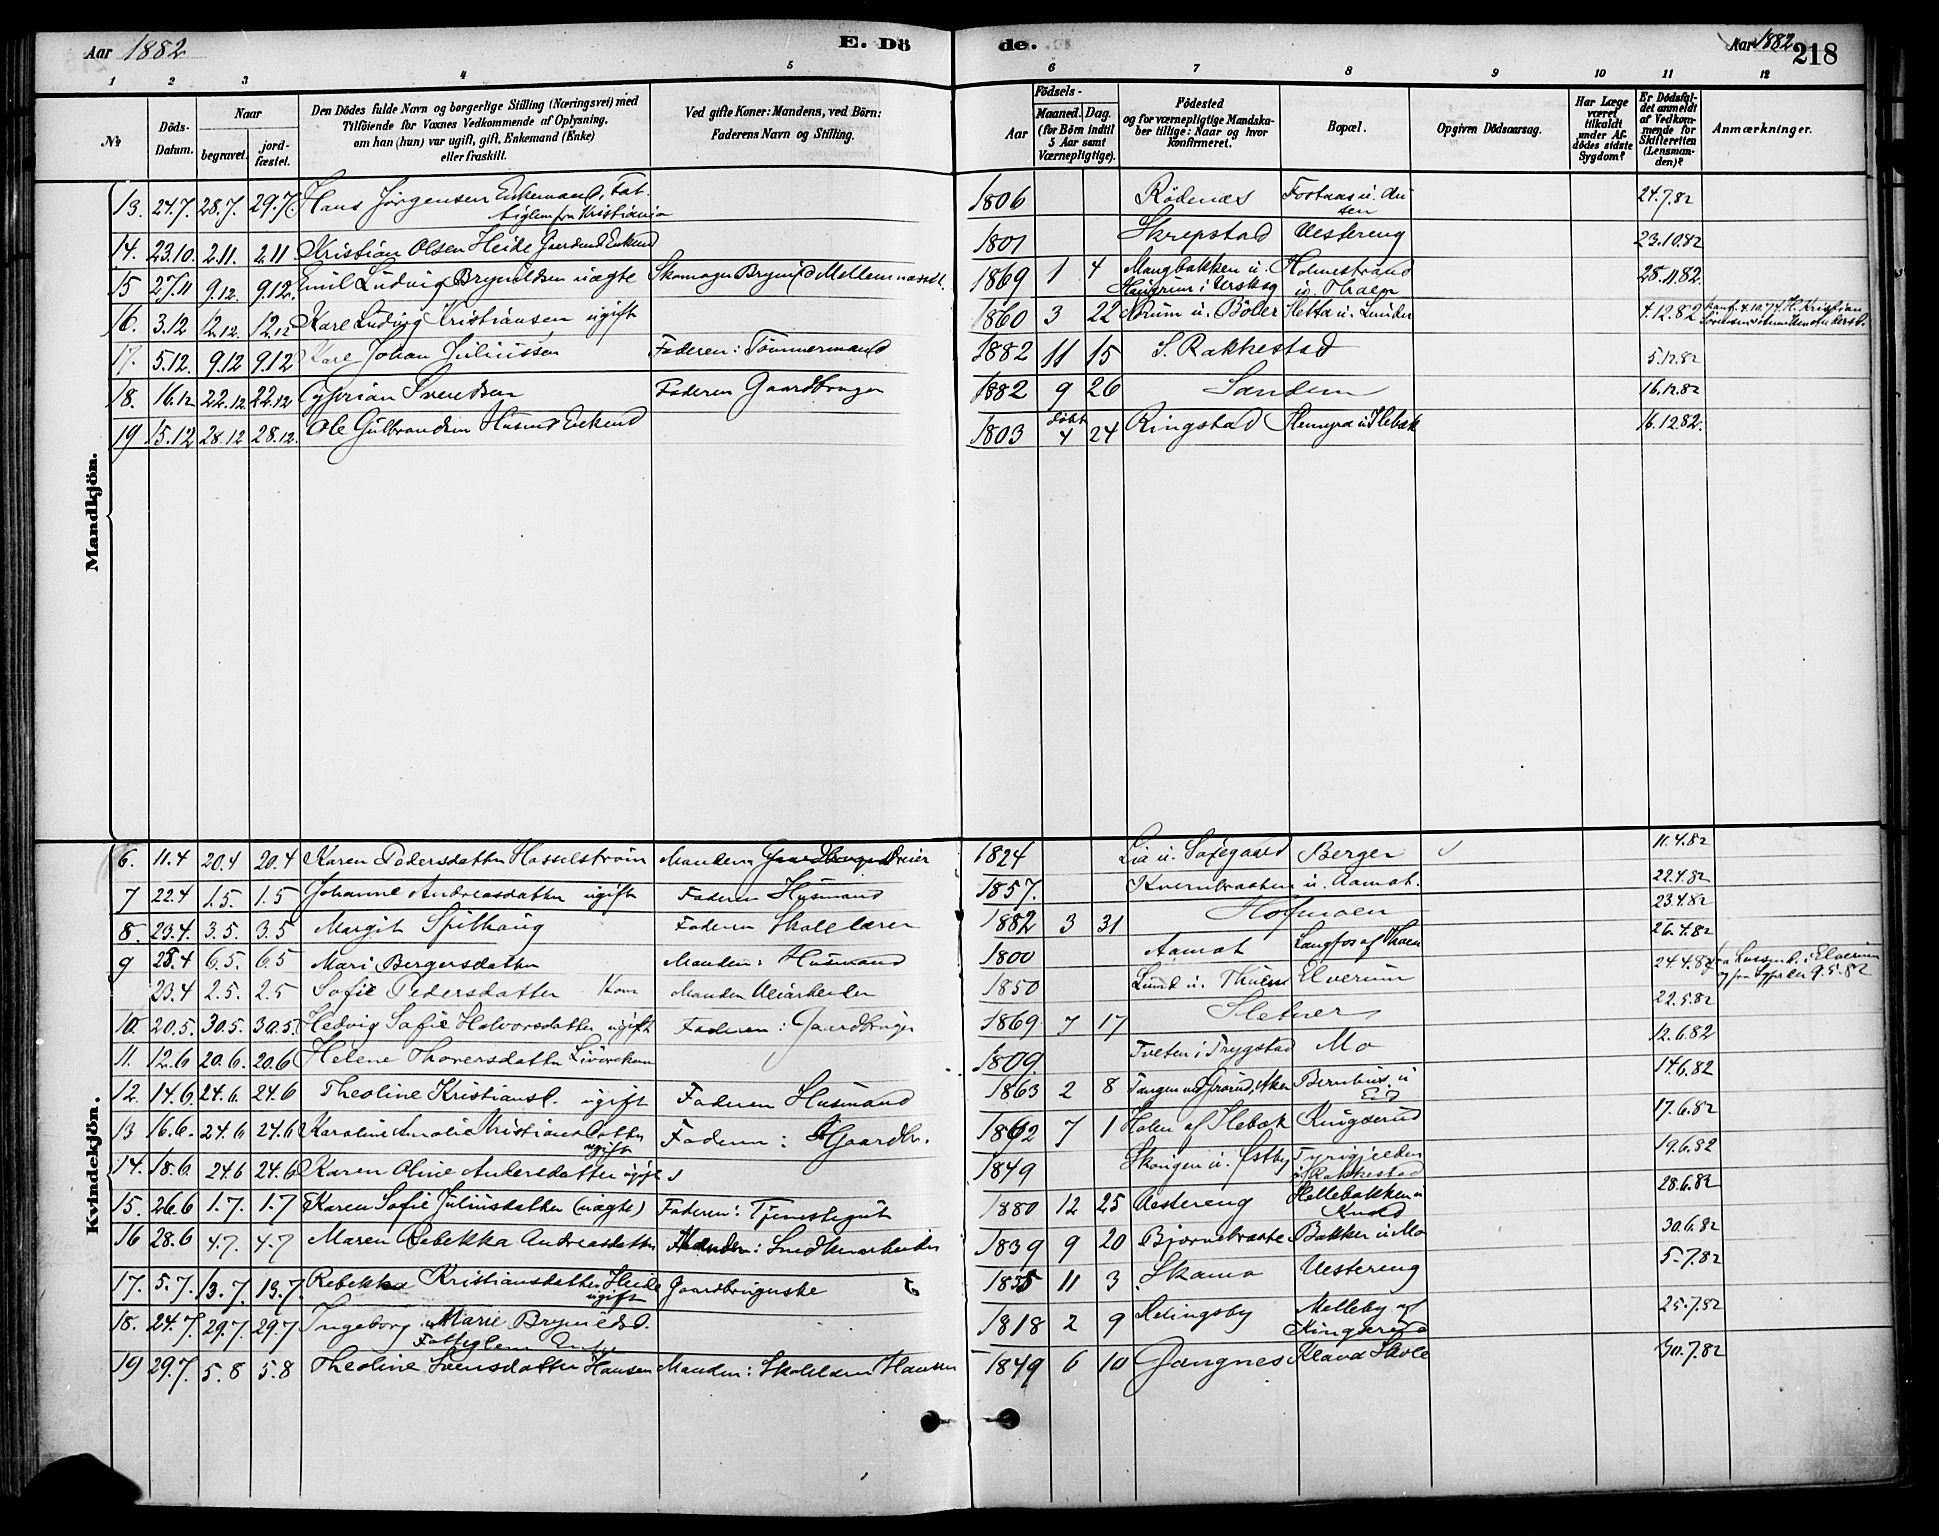 Aar 1882
E. Dö
de.
Aar 1882
218
1 2 3 4 5 6 7 8 9 10 11 12
No
Döds-Datum.
Naar
begravet.
jord-fæstet.
Den Dödes fulde Navn og borgerlige Stilling (Næringsvei) med
Tilföiende for Voxnes Vedkommende af Oplysning,
om han (hun) var ugift, gift, Enkemand (Enke)
eller fraskilt.
Ved gifte Koner: Mandens, ved Börn:
Faderens Navn og Stilling.
Födsels-
Aar
Maaned. Dag.
(for Börn indtil
5 Aar samt
Værnepligtige).
Födested
og for værnepligtige Mandska-
ber tillige: Naar og hvor
konfirmeret.
Bopæl.
Opgiven Dödsaarsag.
Har Læge
været
tilkaldt
under Af-
dödes sidste
Sygdom?
Er Dödsfal-
det anmeldt
af Vedkom-
mende for
Skifteretten
(Lensman-
den)?
Anmærkninger.
Mandkjön.
13. 24.7. 28.7. 29.7. Hans Jörgensen Enkemand, Fat- 1806 Rødenæs 24.7.82
tiglem fra Kristiania
14. 23.10. 2.11. 2.11 Kristian Olsen Heide Gaardmd Enkemd 1801 Skrepstad Vestereng 23.10.82
15 27.11 9.12. 9.12. Emil Ludvig Brynildsen uægte Skomager Brynild 1869 1 4 Mangbakken u. Holmestrand 28.11.82.
16. 3.12 12.12. 12.12 Karl Ludvig Kristiansen ugift 1860 3 22 Norum u. Böler Hetta u. Lunder 4.12.82
17. 5.12. 9.12 9.12 Karl Johan Juliussen Faderen: Tömmermand 1882 11 15 S. Rakkestad 5.12.82
18. 16.12 22.12 22.12 Cyprian Svendsen Faderen Gaardbruger 1882 9 26 Sandem 16.12.82
19 15.12 28.12 28.12. Ole Gulbrandsen Husmd Enkemd 1803 döbt 4 24 Ringstad 16.12.82.
Kvindekjön.
6. 11.4 20.4 20.4 Karen Pedersdatter Hasselström Manden Gaardbruger Dreier 1824 Lia u. Berger 11.4.82
7 22.4 1.5. 1.5 Johanne Andreasdatter ugift Faderen Husmand 1857. Kvernbraaten u. Aamot. 22.4.82
8. 23.4. 3.5. 3.5 Margit Spilhaug Faderen Skolelærer 1882 3 31 Hofmoen 23.4.82
9 25.4 6.5. 6.5 Mari Bergersdatter Manden: Husmand 1800 Aamot Langfos af Thoen 26.4.82
23.4 2.5. 2.5 Sofie Pedersdatter Kone Manden 1850 Lund u. Thoen Elverum 24.4.82
10. 20.5. 30.5. 30.5. Hedvig Sofie Halvorsdatter ugift Faderen: Gaardbruger 1869 7 17 Sletner 22.5.82
11. 12.6 20.6. 20.6 Helene Thoresdatter 1809. Tveten i Trygstad Mo 12.6.82
12. 14.6. 24.6. 24.6 Theoline Kristiansd. ugift Faderen Husmand 1863 2 8 Bernhus u. 14.6.82
13 16.6. 24.6 24.6 Karoline Amalie Kristiansdatter Faderen: Gaardbr. 1862 7 1 Holen af Slebæk Ringsrud 17.6.82
ugift
14. 18.6 24.6 24.6 Karen Oline Andersdatter ugift 1849 Skougen u. Østby Tyrigjelden 19.6.82
u. Rakkestad
15. 26.6 1.7. 1.7 Karen Sofie Juliusdatter (uægte) Faderen: Tjenestegut 1880 12 25 Vestereng Hellebakken u. 28.6.82
16 28.6 4.7. 4.7 Maren Rebekka Andreasdatter Manden: Snedkerarbeider 1839 9 20 Bjørnebraate Bakken u. Mo 30.6.82
17. 5.7. 13.7. 13.7. Rebekka Kristiansdatter Heide Gaardbrugerske 1835 11 3 Skamo Vestereng 5.7.82
ugift
18. 24.7. 29.7. 29.7 Ingeborg Marie Brynildsd. 1818 2 9 Melleby af 25.7.82
Fattiglem Enke
19 29.7. 5.8 5.8 Theoline Svensdatter Hansen Manden: Skolelærer Hansen 1849 6 10 Gangnes Klava Skole 30.7.82